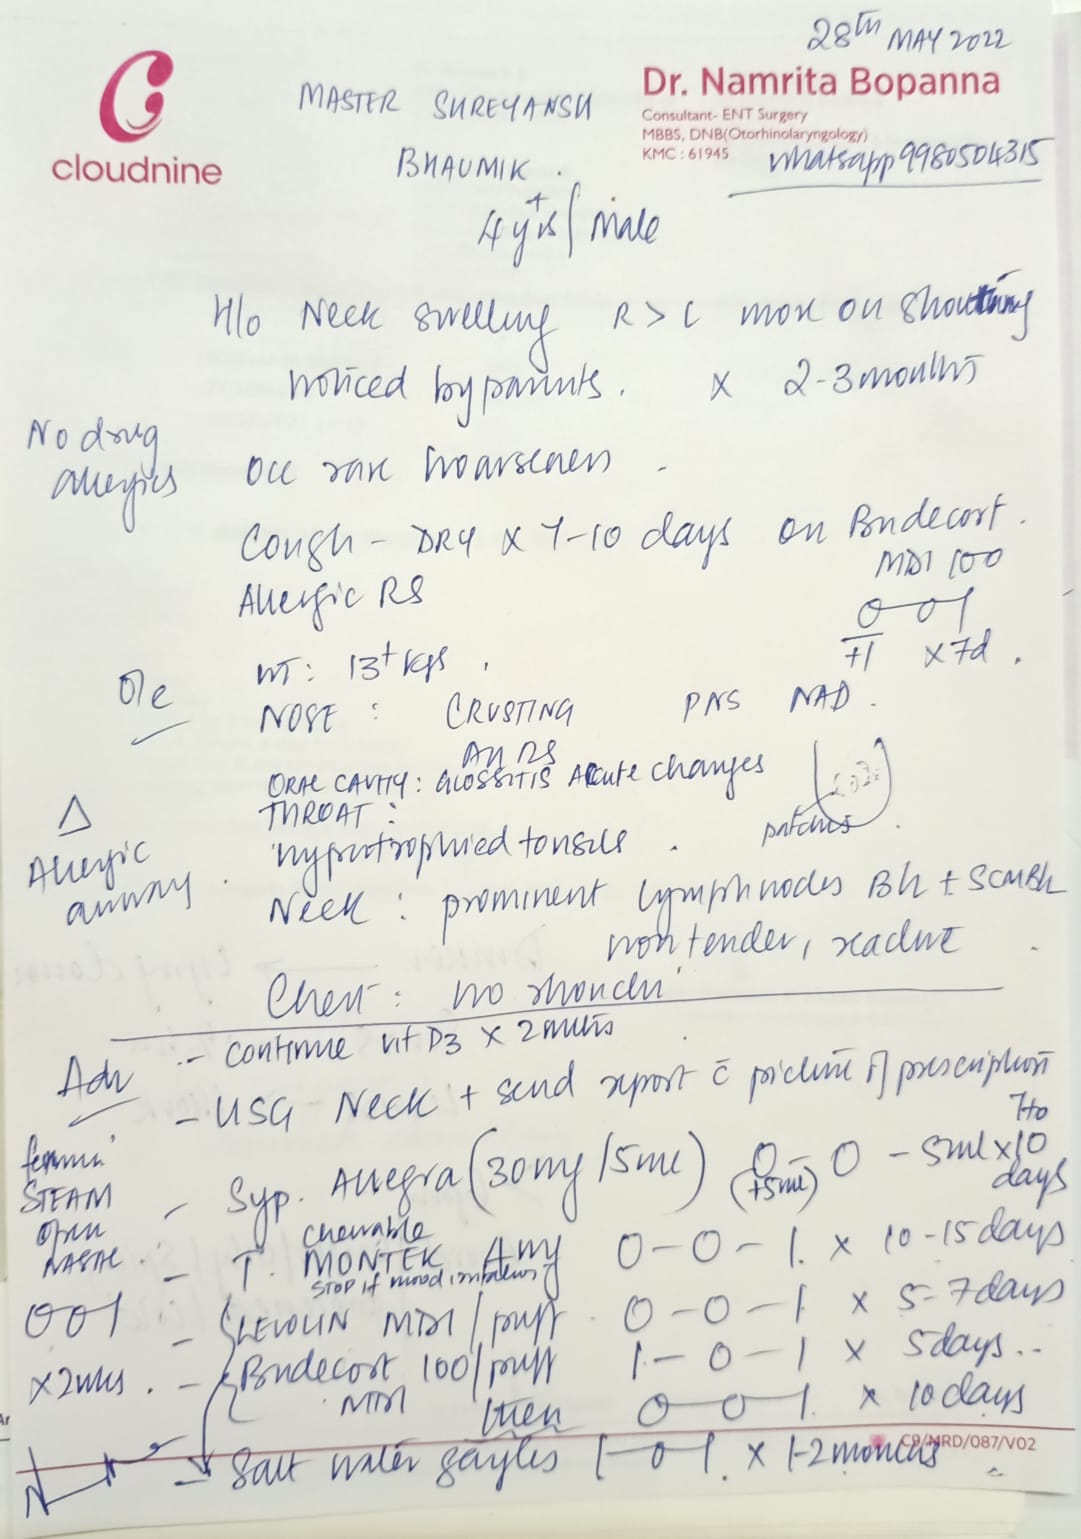 28TH MAY 2022
cloudnine
Dr. Namrita Bopanna
Consultant- ENT Surgery
MBBS, DNB(Otorhinolaryngology)
KMC : 61945
whatsapp 9980504315
MASTER SHREYANSH
BHAUMIK .
4 yrs+ / Male
H/o Neck swelling R > L more on shouting
noticed by parents. x 2-3 months
No drug
allergies
Occ rare hoarseness .
Cough - DRY x 7-10 days on Budecort .
MDI 100
Allergic RS
0-0-1
x 7d .
O/e
WT : 13+ kgs .
NOSE : CRUSTING PNS NAD .
ORAL CAVITY : GLOSSITIS Acute changes
THROAT :
patches
hypertrophied tonsils .
Δ
Allergic
airway .
Neck : prominent lymphnodes B/L + SCM B/L
non tender, reactive
Chest : no rhonchi
Adv
- Continue vit D3 x 2 mths
- USG Neck + send report c̄ picture of prescription
- Syp. Allegra (30mg/5ml) 0 - 0 - 5ml x 7 to 10 days
(+5ml)
STEAM
0 0 1
x 2 wks .
chewable
- T. MONTEK 4mg 0-0-1 x 10-15 days
STOP if mood irritability
- LEVOLIN MDI / puff 0-0-1 x 5-7 days
- Budecort 100 / puff 1-0-1 x 5 days..
MDI then 0-0-1 x 10 days
C9/MRD/087/V02
- Salt water gargles 1-0-1 x 1-2 months